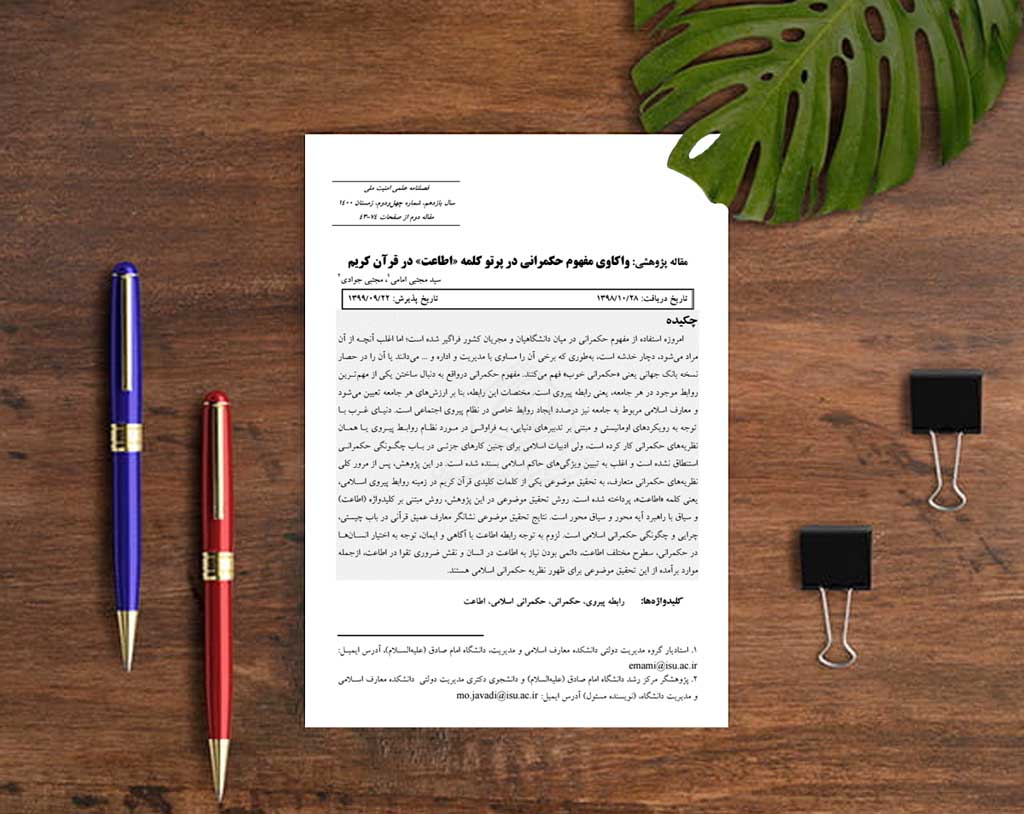 فصلنامه علمی امنیت ملی
سال یازدهم، شماره چهل‌ودوم، زمستان ۱۴۰۰
مقاله دوم از صفحات ۷۴-۴۳
مقاله پژوهشی: واکاوی مفهوم حکمرانی در پرتو کلمه «اطاعت» در قرآن کریم
سید مجتبی امامی۱، مجتبی جوادی۲
تاریخ دریافت: ۱۳۹۸/۱۰/۲۸ تاریخ پذیرش: ۱۳۹۹/۰۹/۲۲
چکیده
امروزه استفاده از مفهوم حکمرانی در میان دانشگاهیان و مجریان کشور فراگیر شده است؛ اما اغلب آنچـه از آن
مراد می‌شود، دچار خدشه است، به‌طوری که برخی آن را مساوی با مدیریت و اداره و ... می‌دانند یا آن را در حصار
نسخه بانک جهانی یعنی «حکمرانی خوب» فهم می‌کنند. مفهوم حکمرانی درواقع به دنبال ساختن یکی از مهم‌تـرین
روابط موجود در هر جامعه، یعنی رابطه پیروی است. مختصات این رابطه، بنا بر ارزش‌های هر جامعه تعیین می‌شود
و معارف اسلامی مربوط به جامعه نیز درصدد ایجاد روابط خاصی در نظام پیروی اجتماعی است. دنیـای غـرب بـا
توجه به رویکردهای اومانیستی و مبتنی بر تدبیرهای دنیایی، بـه فراوانـی در مـورد نظـام روابـط پیـروی یـا همـان
نظریه‌های حکمرانی کار کرده است، ولی ادبیات اسلامی برای چنین کارهای جزئـی در بـاب چگـونگی حکمرانـی
استنطاق نشده است و اغلب به تبیین ویژگی‌های حاکم اسلامی بسنده شده است. در این پژوهش، پس از مرور کلی
نظریه‌های حکمرانی متعارف، به تحقیق موضوعی یکی از کلمات کلیدی قرآن کریم در زمینه روابط پیروی اسـلامی،
یعنی کلمه «اطاعت»، پرداخته شده است. روش تحقیق موضوعی در این پژوهش، روش مبتنی بر کلیدواژه (اطاعت)
و سیاق با راهبرد آیه محور و سیاق محور است. نتایج تحقیق موضوعی نشانگر معارف عمیق قرآنی در باب چیستی،
چرایی و چگونگی حکمرانی اسلامی است. لزوم به توجه رابطه اطاعت با آگاهی و ایمان، توجه به اختیار انسـان‌هـا
در حکمرانی، سطوح مختلف اطاعت، دائمی بودن نیاز به اطاعت در انسان و نقش ضروری تقوا در اطاعت، ازجمله
موارد برآمده از این تحقیق موضوعی برای ظهور نظریه حکمرانی اسلامی هستند.
کلیدواژه‌ها: رابطه پیروی، حکمرانی، حکمرانی اسلامی، اطاعت
۱. استادیار گروه مدیریت دولتی دانشکده معارف اسلامی و مدیریت، دانشگاه امام صادق (علیه‌السـلام)، آدرس ایمیـل:
emami@isu.ac.ir
۲. پژوهشگر مرکز رشد دانشگاه امام صادق (علیه‌السلام) و دانشجوی دکتری مدیریت دولتی دانشکده معارف اسـلامی
و مدیریت دانشگاه، (نویسنده مسئول) آدرس ایمیل: mo.javadi@isu.ac.ir